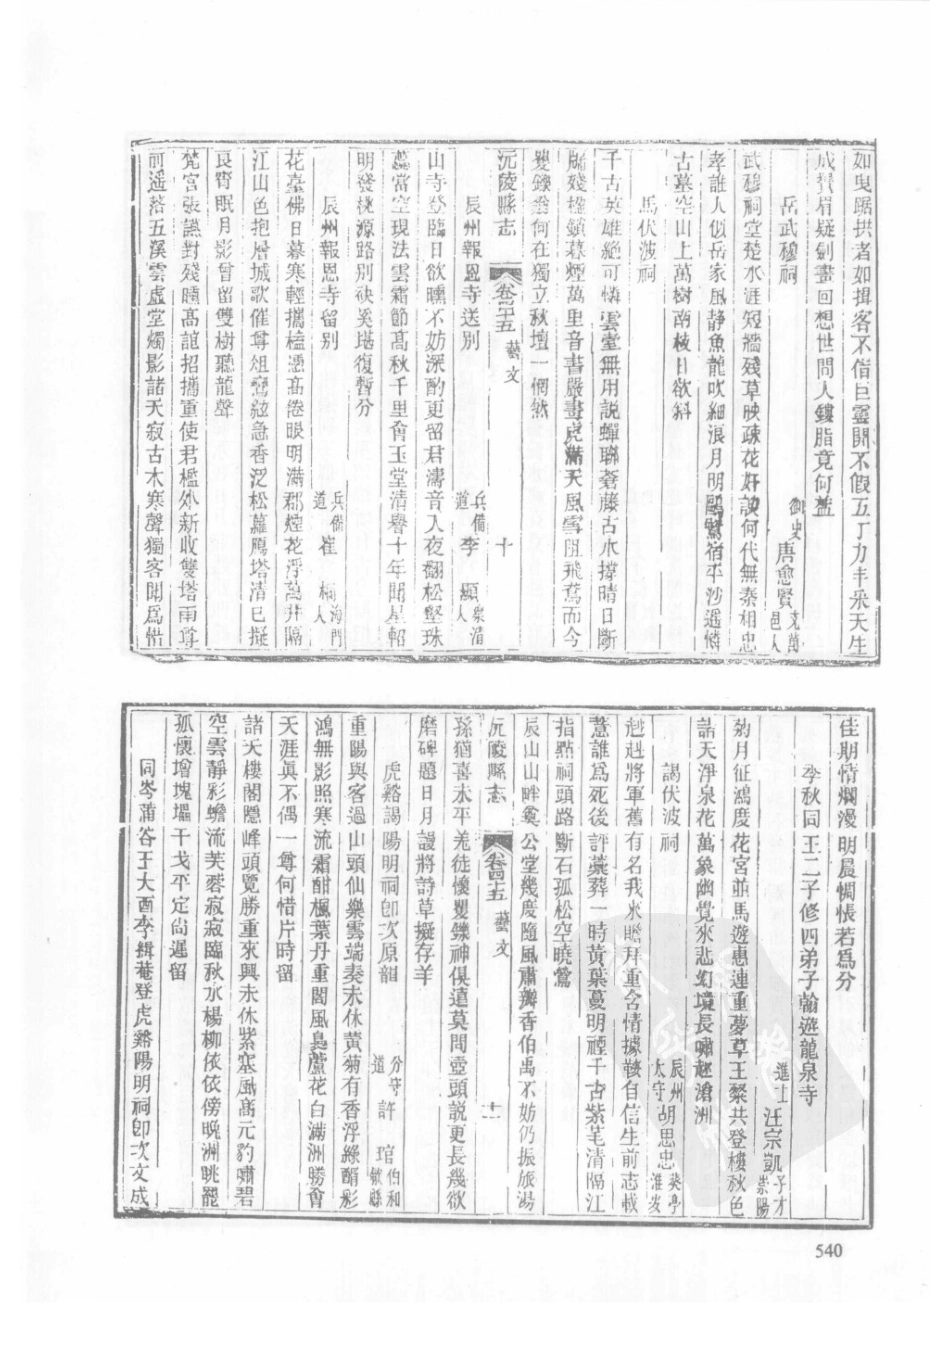 如曳踞拱者如揖客不借巨靈開不假五丁力丰采天生
成贊眉疑劍畫回想世間人鏤脂竟何益
岳武穆祠 御史唐愈賢克萬邑人
武穆祠堂楚水涯短牆殘草映疎花奸諛何代無秦相忠
孝誰人似岳家風静魚龍吹細浪月明鷗鷺宿平沙遥憐
古墓空山上萬樹南枝日欲斜
馬伏波祠
千古英雄絶可憐雲臺無用説蟬聯蒼藤古木撐晴日斷
牖殘楹鎖暮煙萬里音書嚴畫虎滿天風雪阻飛鳶而今
矍鑠翁何在獨立秋壇一惘然
沅陵縣志 卷四十五 藝文 十
辰州報恩寺送别 兵備道李 顯 人
山寺登臨日欲曛不妨深酌更留君濤音入夜翻松壑珠
蕋當空現法雲霜節高秋千里會玉堂清譽十年聞星軺
明發桃源路别袂奚堪復暫分
辰州報恩寺留别 兵備道崔 桐海門人
花臺佛日暮寒輕攜榼憑高倦眼明滿郡煙花浮萬井隔
江山色抱層城歌催尊俎鶯絃急香泛松蘿鴈塔清已擬
良宵眠月影曾留雙樹聽龍聲
梵宫張讌對殘曛高誼招攜重使君檻外新收雙塔雨尊
前遥落五溪雲虚堂燭影諸天寂古木寒聲獨客聞爲惜
佳期情爛漫明晨惆悵若爲分
季秋同王二子修四弟子翰遊龍泉寺 進士汪宗凱子才崇陽
匊月征鴻度花宫並馬遊惠連重夢草王粲共登樓秋色
諸天淨泉花萬象幽覺來悲幻境長嘯起滄洲
謁伏波祠 辰州太守胡思忠葵亭淮安
赳赳將軍舊有名我來瞻拜重含情據鞍自信生前志載
薏誰爲死後評藁葬一時黄葉蔓明禋千古紫芼清隔江
指點祠頭路斷石孤松空曉鶯
辰山山畔奠公堂幾度隨風肅瓣香伯禹不妨仍振旅湯
沅陵縣志 卷四十五 藝文 十一
孫猶喜未平羌徒懷矍鑠神俱遠莫問壺頭説更長幾欲
磨碑題日月謾將詩草擬存羊
虎谿謁陽明祠卽次原韻 分守道許 琯伯和歙縣
重陽與客過山頭仙樂雲端奏未休黄菊有香浮綠醑彩
鴻無影照寒流霜酣楓葉丹重閣風裊蘆花白滿洲勝會
天涯眞不偶一尊何惜片時留
諸天樓閣隱峰頭覽勝重來興未休紫塞風高元豹嘯碧
空雲靜彩蟾流芙蓉寂寂臨秋水楊柳依依傍晩洲眺罷
孤懷增塊壘干戈平定尙遲留
同岑蒲谷王大酉李緝菴登虎谿陽明祠卽次文成
540